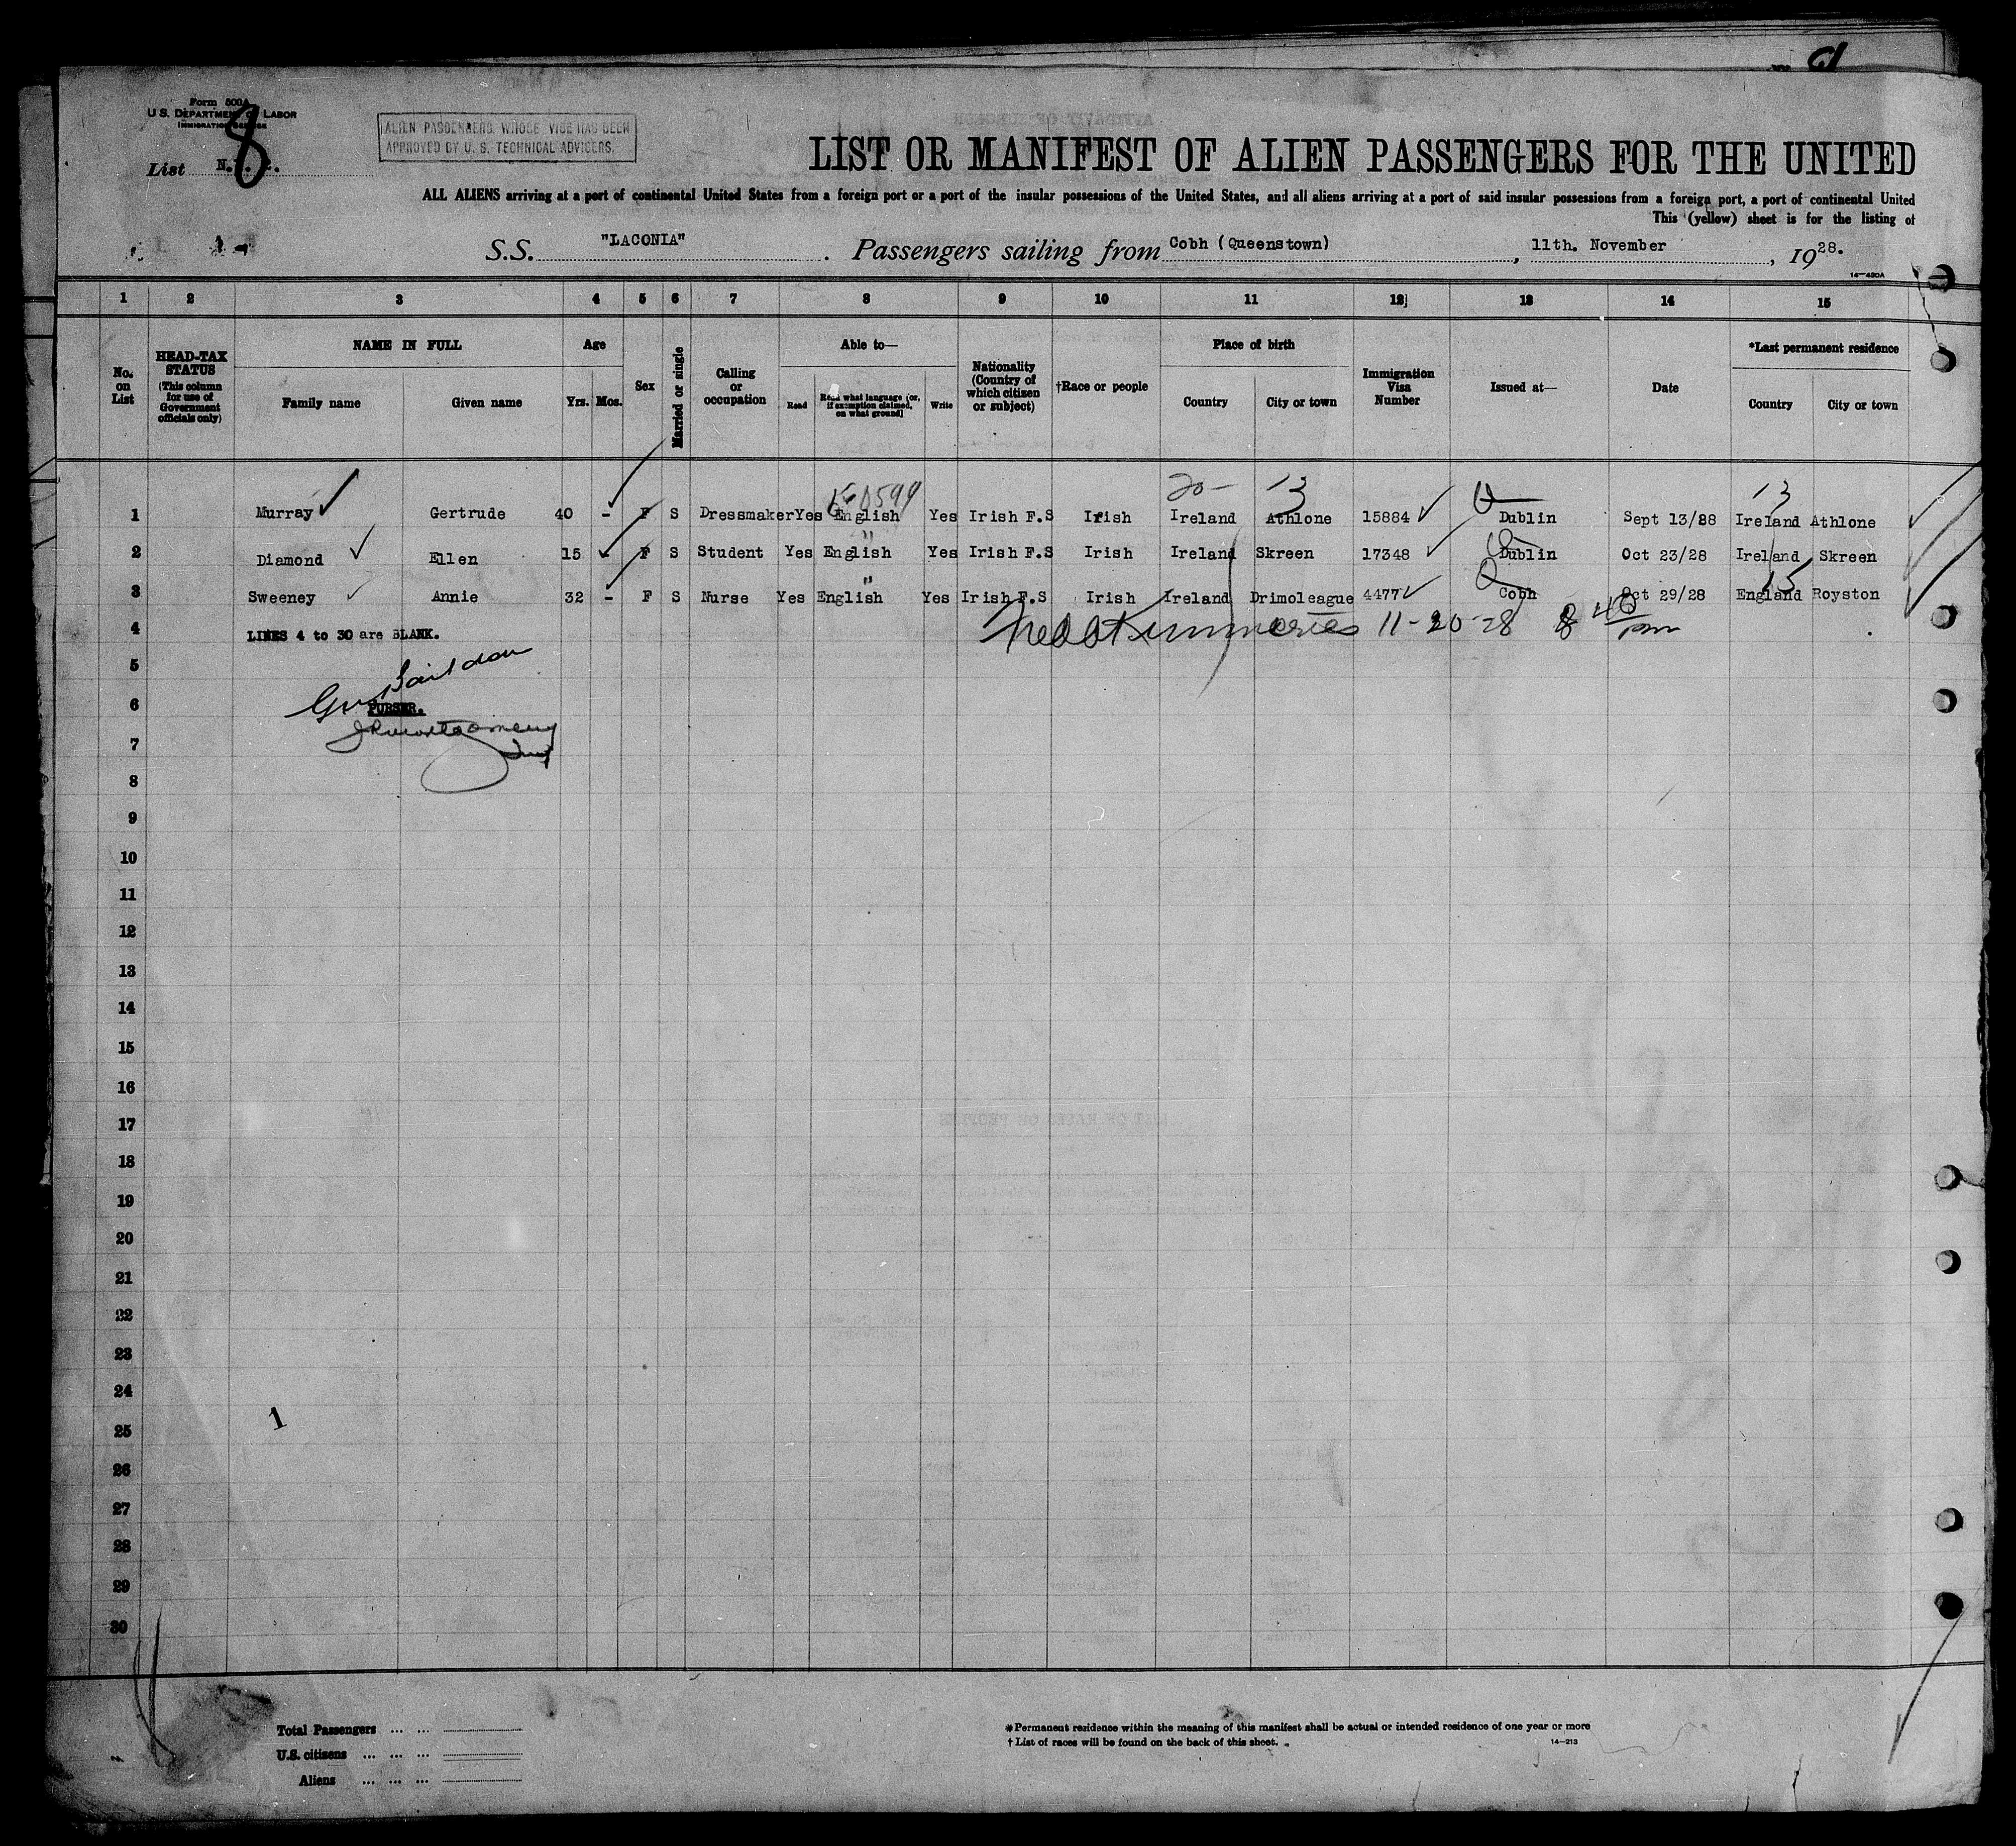 Form 500A
U.S. DEPARTMENT OF LABOR
IMMIGRATION SERVICE
List 8
ALIEN PASSENGERS WHOSE VISE HAS BEEN
APPROVED BY U. S. TECHNICAL ADVISERS.
LIST OR MANIFEST OF ALIEN PASSENGERS FOR THE UNITED
ALL ALIENS arriving at a port of continental United States from a foreign port or a port of the insular possessions of the United States, and all aliens arriving at a port of said insular possessions from a foreign port, a port of continental United
This (yellow) sheet is for the listing of
S.S. "LACONIA". Passengers sailing from Cobh (Queenstown), 11th. November, 1928.
14-430A
1 2 3 4 5 6 7 8 9 10 11 12 13 14 15
No. on List
HEAD-TAX STATUS (This column for use of Government officials only)
NAME IN FULL
Family name Given name
Age
Yrs. Mos.
Sex
Married or single
Calling or occupation
Able to—
Read Read what language (or, if exemption claimed, on what ground) Write
Nationality (Country of which citizen or subject)
†Race or people
Place of birth
Country City or town
Immigration Visa Number
Issued at—
Date
*Last permanent residence
Country City or town
20- 13 13
1 Murray Gertrude 40 - F S Dressmaker Yes English Yes Irish F.S Irish Ireland Athlone 15884 Dublin Sept 13/28 Ireland Athlone
2 Diamond Ellen 15 - F S Student Yes English Yes Irish F.S Irish Ireland Skreen 17348 Dublin Oct 23/28 Ireland Skreen
3 Sweeney Annie 32 - F S Nurse Yes English Yes Irish F.S Irish Ireland Drimoleague 4477 Cobh Oct 29/28 England Royston
15
4 LINES 4 to 30 are BLANK. 11-20-28 8 40 pm
5
6 PURSER.
7
8
9
10
11
12
13
14
15
16
17
18
19
20
21
22
23
24
1
25
26
27
28
29
30
Total Passengers ... ...
U.S. citizens ... ... ...
Aliens ... ... ...
*Permanent residence within the meaning of this manifest shall be actual or intended residence of one year or more
† List of races will be found on the back of this sheet.
14-213